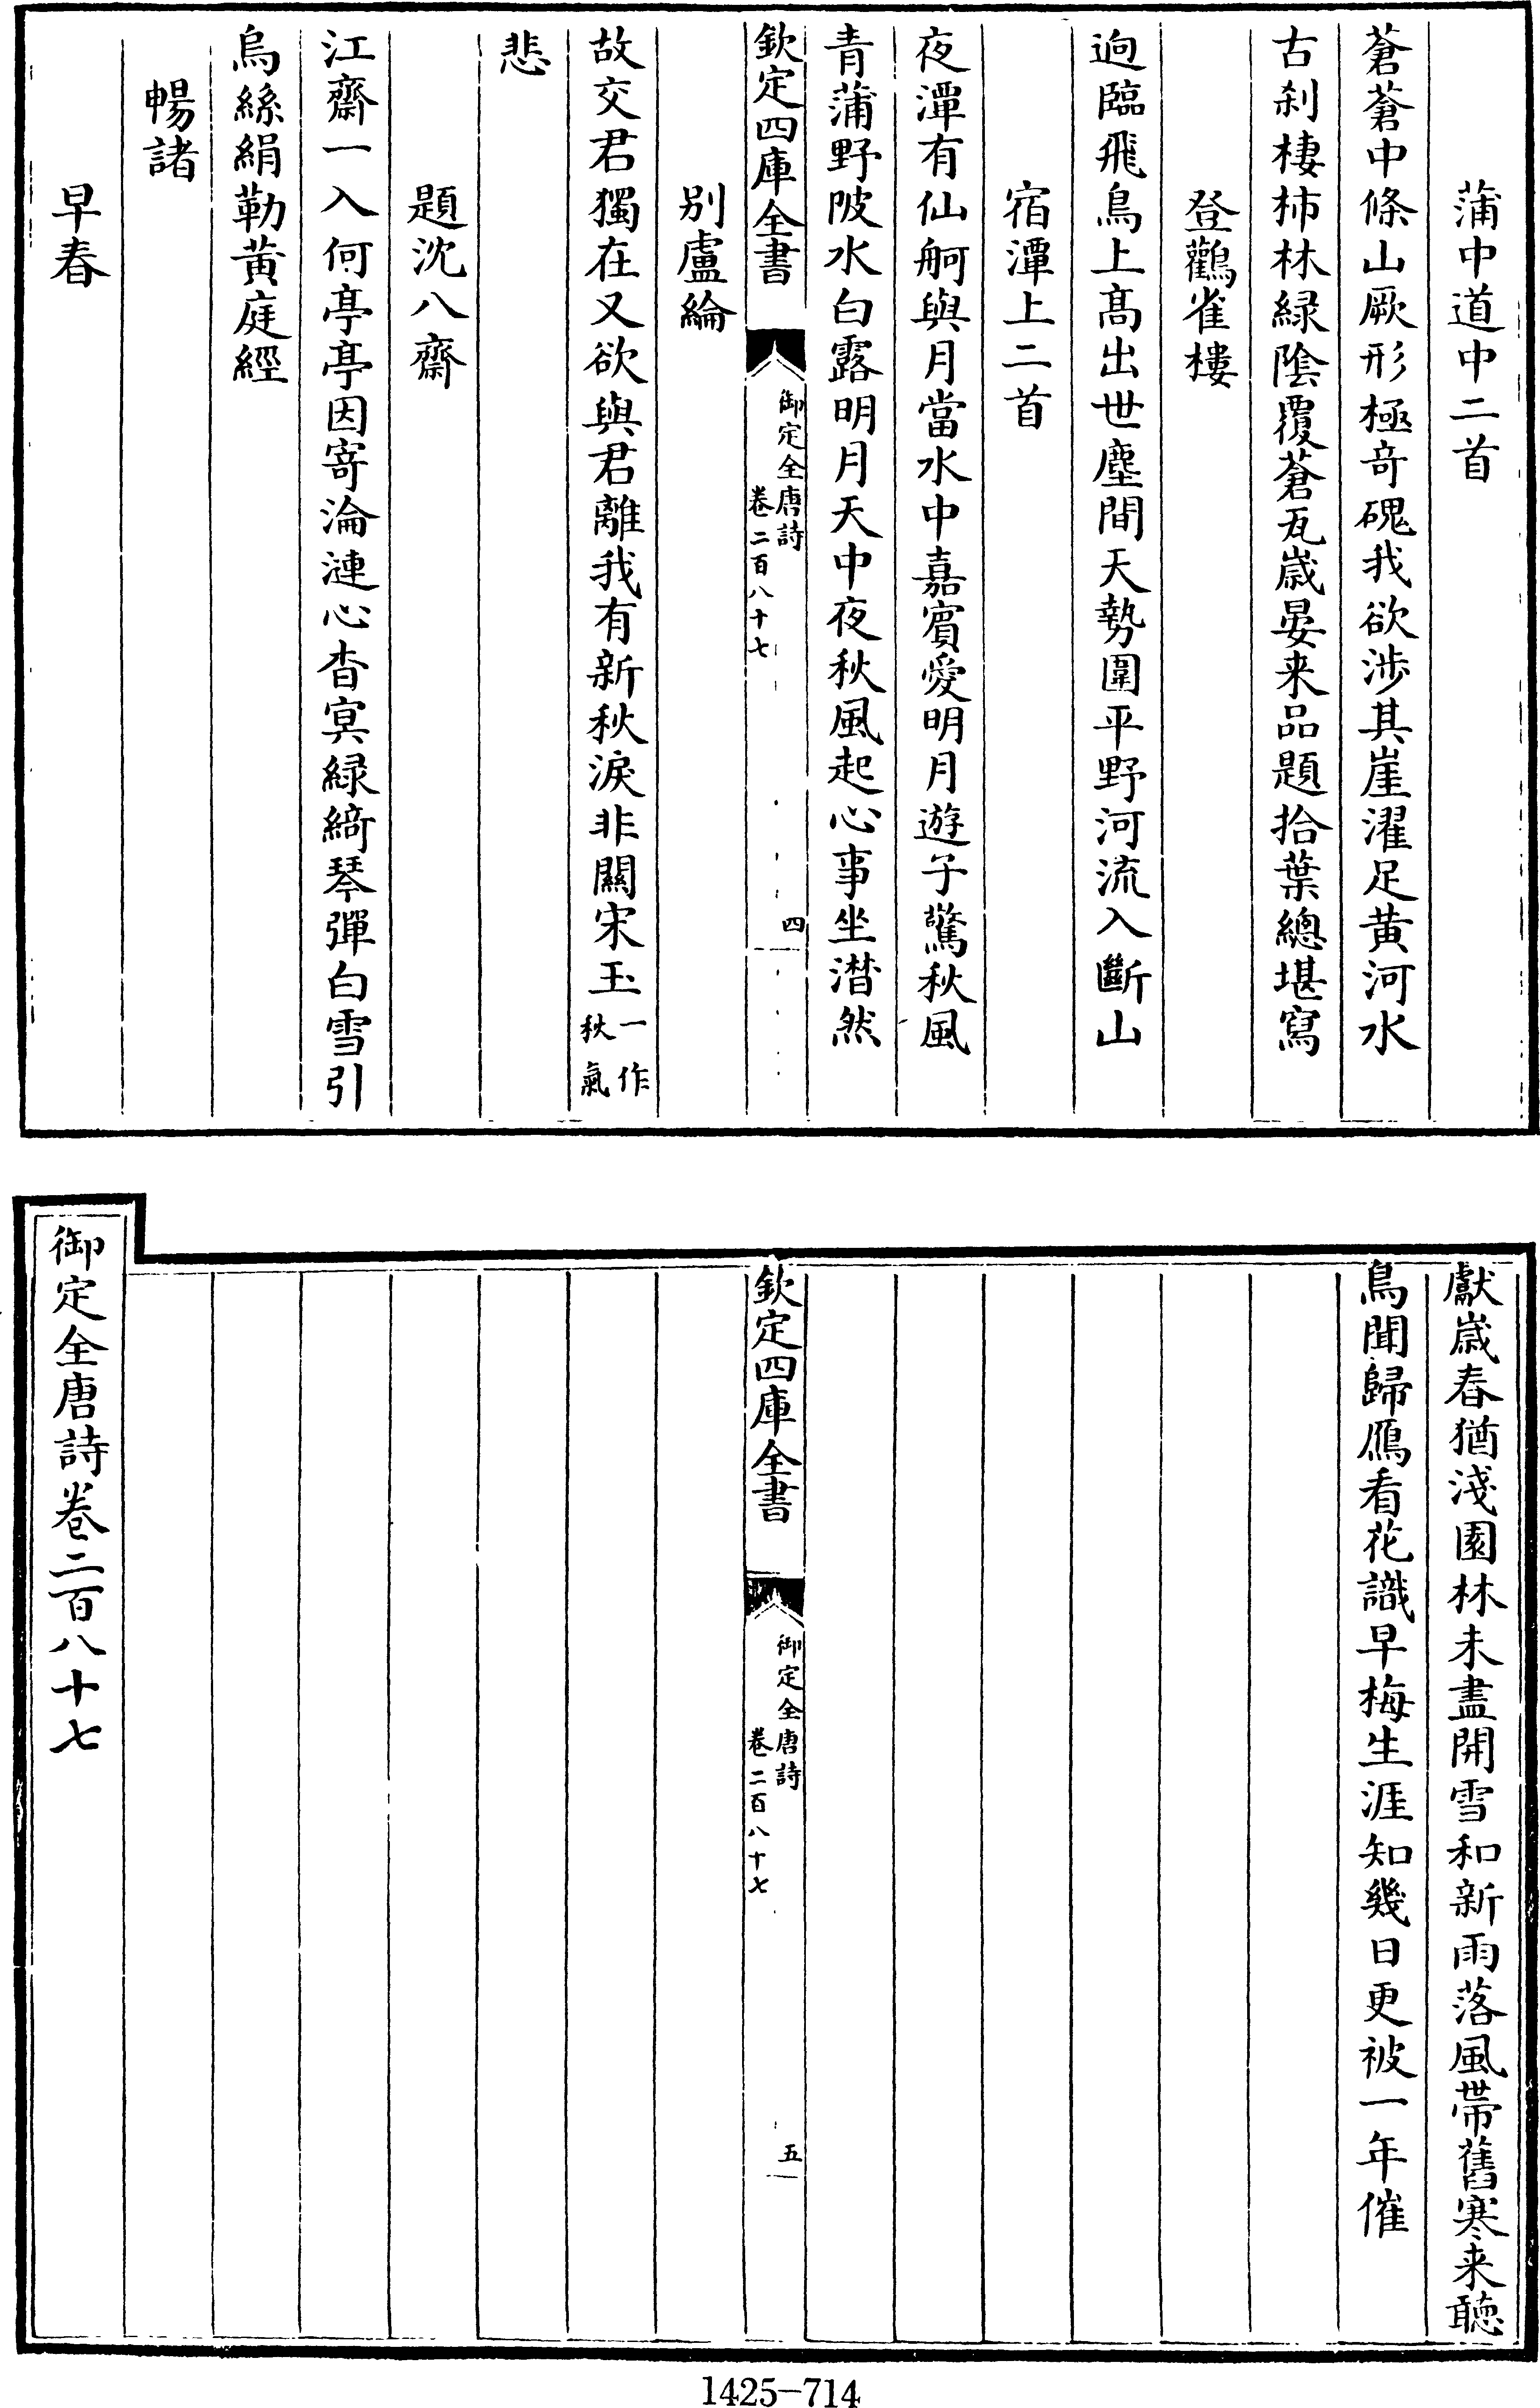 蒲中道中二首
蒼蒼中條山厥形極竒磈我欲涉其崖濯足黄河水
古刹棲柿林緑隂覆蒼瓦嵗晏来品題拾葉總堪寫
登鸛雀樓
逈臨飛鳥上髙出世塵間天勢圍平野河流入斷山
宿潭上二首
夜潭有仙舸與月當水中嘉賓愛明月遊子驚秋風
青蒲野陂水白露明月天中夜秋風起心事坐潸然
欽定四庫全書
御定全唐詩
卷二百八十七
四
别盧綸
故交君獨在又欲與君離我有新秋淚非關宋玉一作秋氣
悲
題沈八齋
江齋一入何亭亭因寄淪漣心杳冥緑綺琴彈白雪引
烏絲絹勒黄庭經
暢諸
早春
獻嵗春猶淺園林未盡開雪和新雨落風帶舊寒来聽
鳥聞歸鴈看花識早梅生涯知幾日更被一年催
欽定四庫全書
御定全唐詩
卷二百八十七
五
御定全唐詩卷二百八十七
1425-714